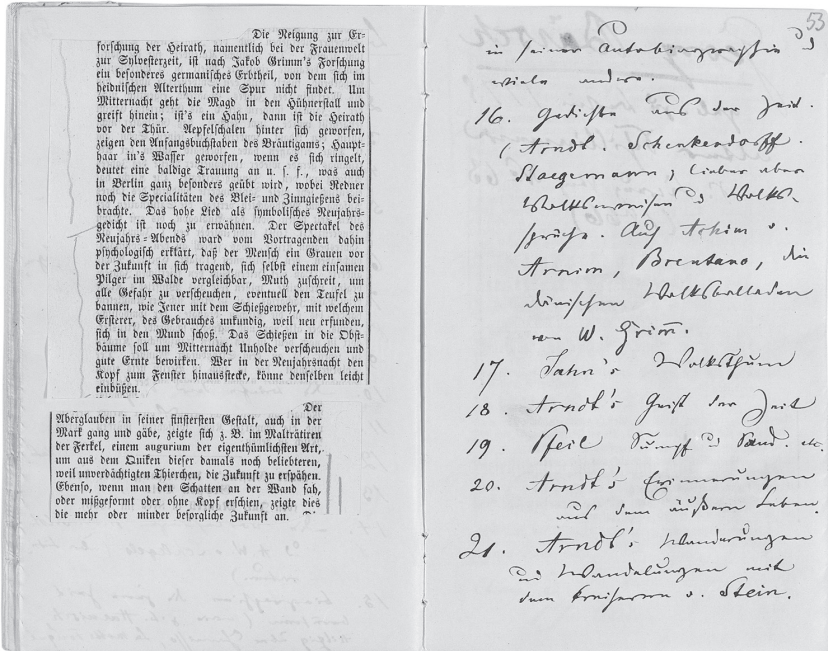 Die Neigung zur Er-
forschung der Heirath, namentlich bei der Frauenwelt
zur Sylvesterzeit, ist nach Jakob Grimm's Forschung
ein besonderes germanisches Erbtheil, von dem sich im
heidnischen Alterthum eine Spur nicht findet. Um
Mitternacht geht die Magd in den Hühnerstall und
greift hinein; ist's ein Hahn, dann ist die Heirath
vor der Thür. Aepfelschalen hinter sich geworfen,
zeigen den Anfangsbuchstaben des Bräutigams; Haupt-
haar in's Wasser geworfen, wenn es sich ringelt,
deutet eine baldige Trauung an u. s. f., was auch
in Berlin ganz besonders geübt wird, wobei Redner
noch die Specialitäten des Blei- und Zinngießens bei-
brachte. Das hohe Lied als symbolisches Neujahrs-
gedicht ist noch zu erwähnen. Der Spectakel des
Neujahrs-Abends ward vom Vortragenden dahin
psychologisch erklärt, daß der Mensch ein Grauen vor
der Zukunft in sich tragend, sich selbst einem einsamen
Pilger im Walde vergleichbar, Muth zuschreit, um
alle Gefahr zu verscheuchen, eventuell den Teufel zu
bannen, wie Jener mit dem Schießgewehr, mit welchem
Ersterer, des Gebrauches unkundig, weil neu erfunden,
sich in den Mund schoß. Das Schießen in die Obst-
bäume soll um Mitternacht Unholde verscheuchen und
gute Ernte bewirken. Wer in der Neujahrsnacht den
Kopf zum Fenster hinausstecke, könne denselben leicht
einbüßen.
Der
Aberglauben in seiner finstersten Gestalt, auch in der
Mark gang und gäbe, zeigte sich z. B. im Malträtiren
der Ferkel, einem augurium der eigenthümlichsten Art,
um aus dem Quiken dieser damals noch beliebteren,
weil unverdächtigten Thierchen, die Zukunft zu erspähen.
Ebenso, wenn man den Schatten an der Wand sah,
oder mißgeformt oder ohne Kopf erschien, zeigte dies
die mehr oder minder besorgliche Zukunft an.
53
in seiner Autobiographie u
viele andere.
16. Gedichte aus der Zeit.
(Arndt. Schenkendorff.
Staegemann, lieber aber
Volksweisen u Volks-
sprüche. Auf Achim v.
Arnim, Brentano, die
dänischen Volksballaden
von W. Grim̄.
17. Jahn's Volksthum
18. Arndt's Geist der Zeit
19. Pfeil Sumpf u Sand. etc.
20. Arndt's Erinnerungen
aus dem äußern Leben.
21. Arndt's Wanderungen
und Wandelungen mit
dem Freiherrn v. Stein.